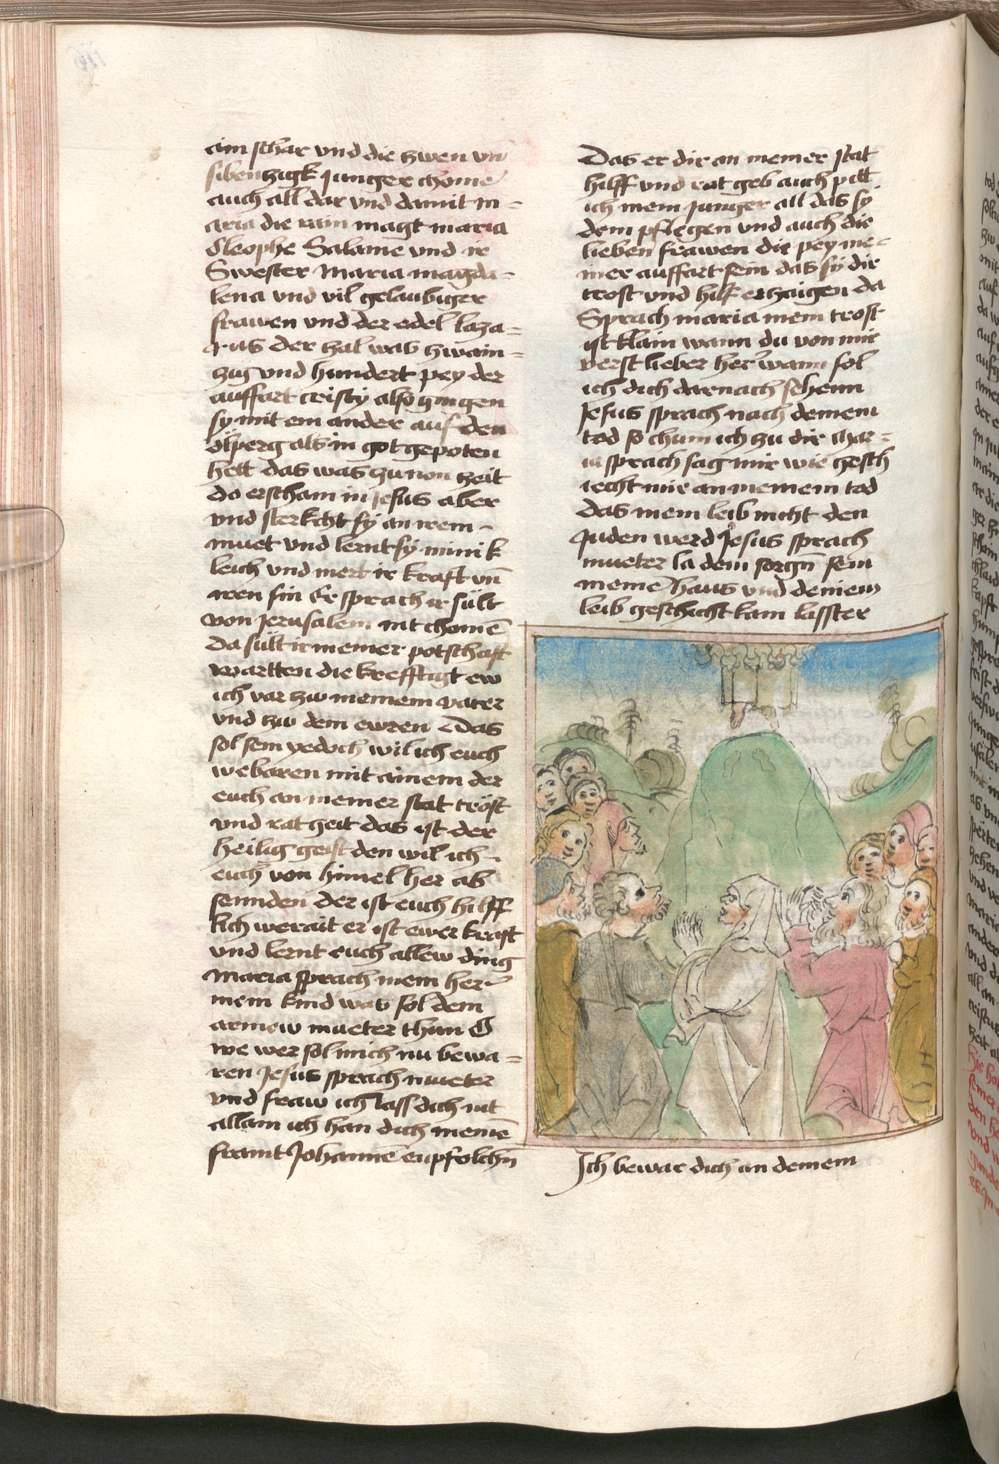 ain schar vnd die zwen vn
sibenczigk Junger chome
auch all dar vnd damit m=
aria die rain magt maria
Cleophe Salame vnd ir
Swester Maria magda=
lena vnd vil gelaubiger
frawen vnd der edel laza=
rus der zal was zwain=
zig vnd hundert pey der
auffart cristy also gingen
sy mit ein ander auf den
ölperg als in got gepoten
hett das was zu non zeit
do erscham in Jesus aber
vnd sterkcht sy an irem
muet vnd lernt sy minik
leich vnd mert ir kraft vn
iren sin Er sprach ir sült
von Jerusalem nit chome
Da sült ir meiner potschaft
wartten die krefftigt ew
ich var zw meinem vater
vnd zw dem ewren Das
sol sein yedoch wil ich euch
webaren mit ainem der
euch an meiner stat tröst
vnd rat geit das ist der
heilig geist den wil ich
euch von himel her ab
sennden der ist euch hilff
lich werait er ist ewer kraft
vnd lernt euch allew ding
Maria sprach mein her
mein kind was sol dein
armew mueter thun O
we wer sol mich nu bewa=
ren Jesus sprach mueter
vnd fraw ich lass dich nit
allain ich han dich meine
frewnt Johanne enpfolchn
Das er dir an meiner stat
hilff vnd rat geb auch pitt
ich mein Junger all das sy
dein pflegen vnd auch die
lieben frawen die pey me=
iner auffart sein das sy dir
trost vnd hilf erzaigen da
Sprach maria mein trost
ist klain wann du von mir
verst lieber her wann sol
ich dich darnach sehenn
Jesus sprach nach deinem
tod so chum ich zu dir Mar=
ia sprach sag mir wie gesch
iecht mir an meinem tod
das mein leib nicht den
Juden werd Jesus sprach
mueter la dein sorgn sein
meine haus vnd deinem
leib geschicht kain lasster
Ich bewar dich an deinem